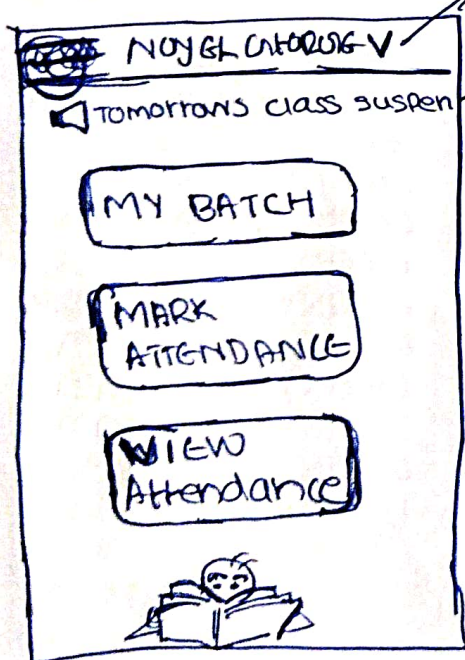 Tomorrows class suspen
MY BATCH
MARK
ATTENDANCE
VIEW
Attendance